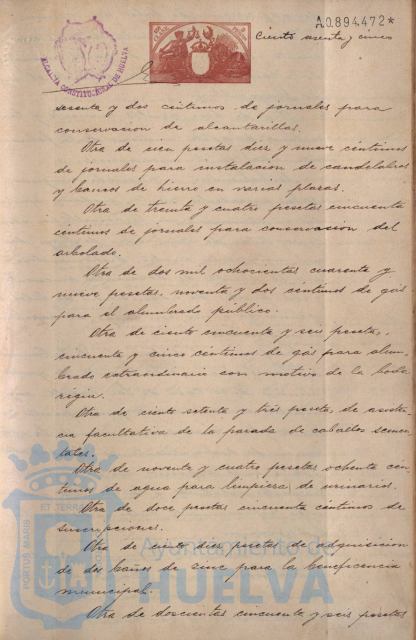 A0894472*
Ciento sesenta y cinco
ALCALDIA CONSTITUCIONAL DE HUELVA
sesenta y dos céntimos de jornales para
conservacion de alcantarillas.
Otra de cien pesetas diez y nueve céntimos
de jornales para instalacion de candelabros
y bancos de hierro en varias plazas.
Otra de treinta y cuatro pesetas cincuenta
céntimos de jornales para conservacion del
arbolado.
Otra de dos mil ochocientas cuarenta y
nueve pesetas, noventa y dos céntimos de gas
para el alumbrado público.
Otra de ciento cincuenta y seis pesetas,
cincuenta y cinco céntimos de gas para alum-
brado extraordinario con motivo de la boda
regia.
Otra de ciento setenta y tres pesetas, de asisten-
cia facultativa de la parada de caballos semen-
tales.
Otra de noventa y cuatro pesetas ochenta cén-
timos de agua para limpieza de urinarios.
Otra de doce pesetas cincuenta céntimos de
suscripciones.
Otra de ciento diez pesetas de adquisicion
de dos baños de zinc para la beneficencia
municipal.
Otra de doscientas cincuenta y seis pesetas
PORTUS MARIS ET TERRAE
Ayuntamiento de
HUELVA